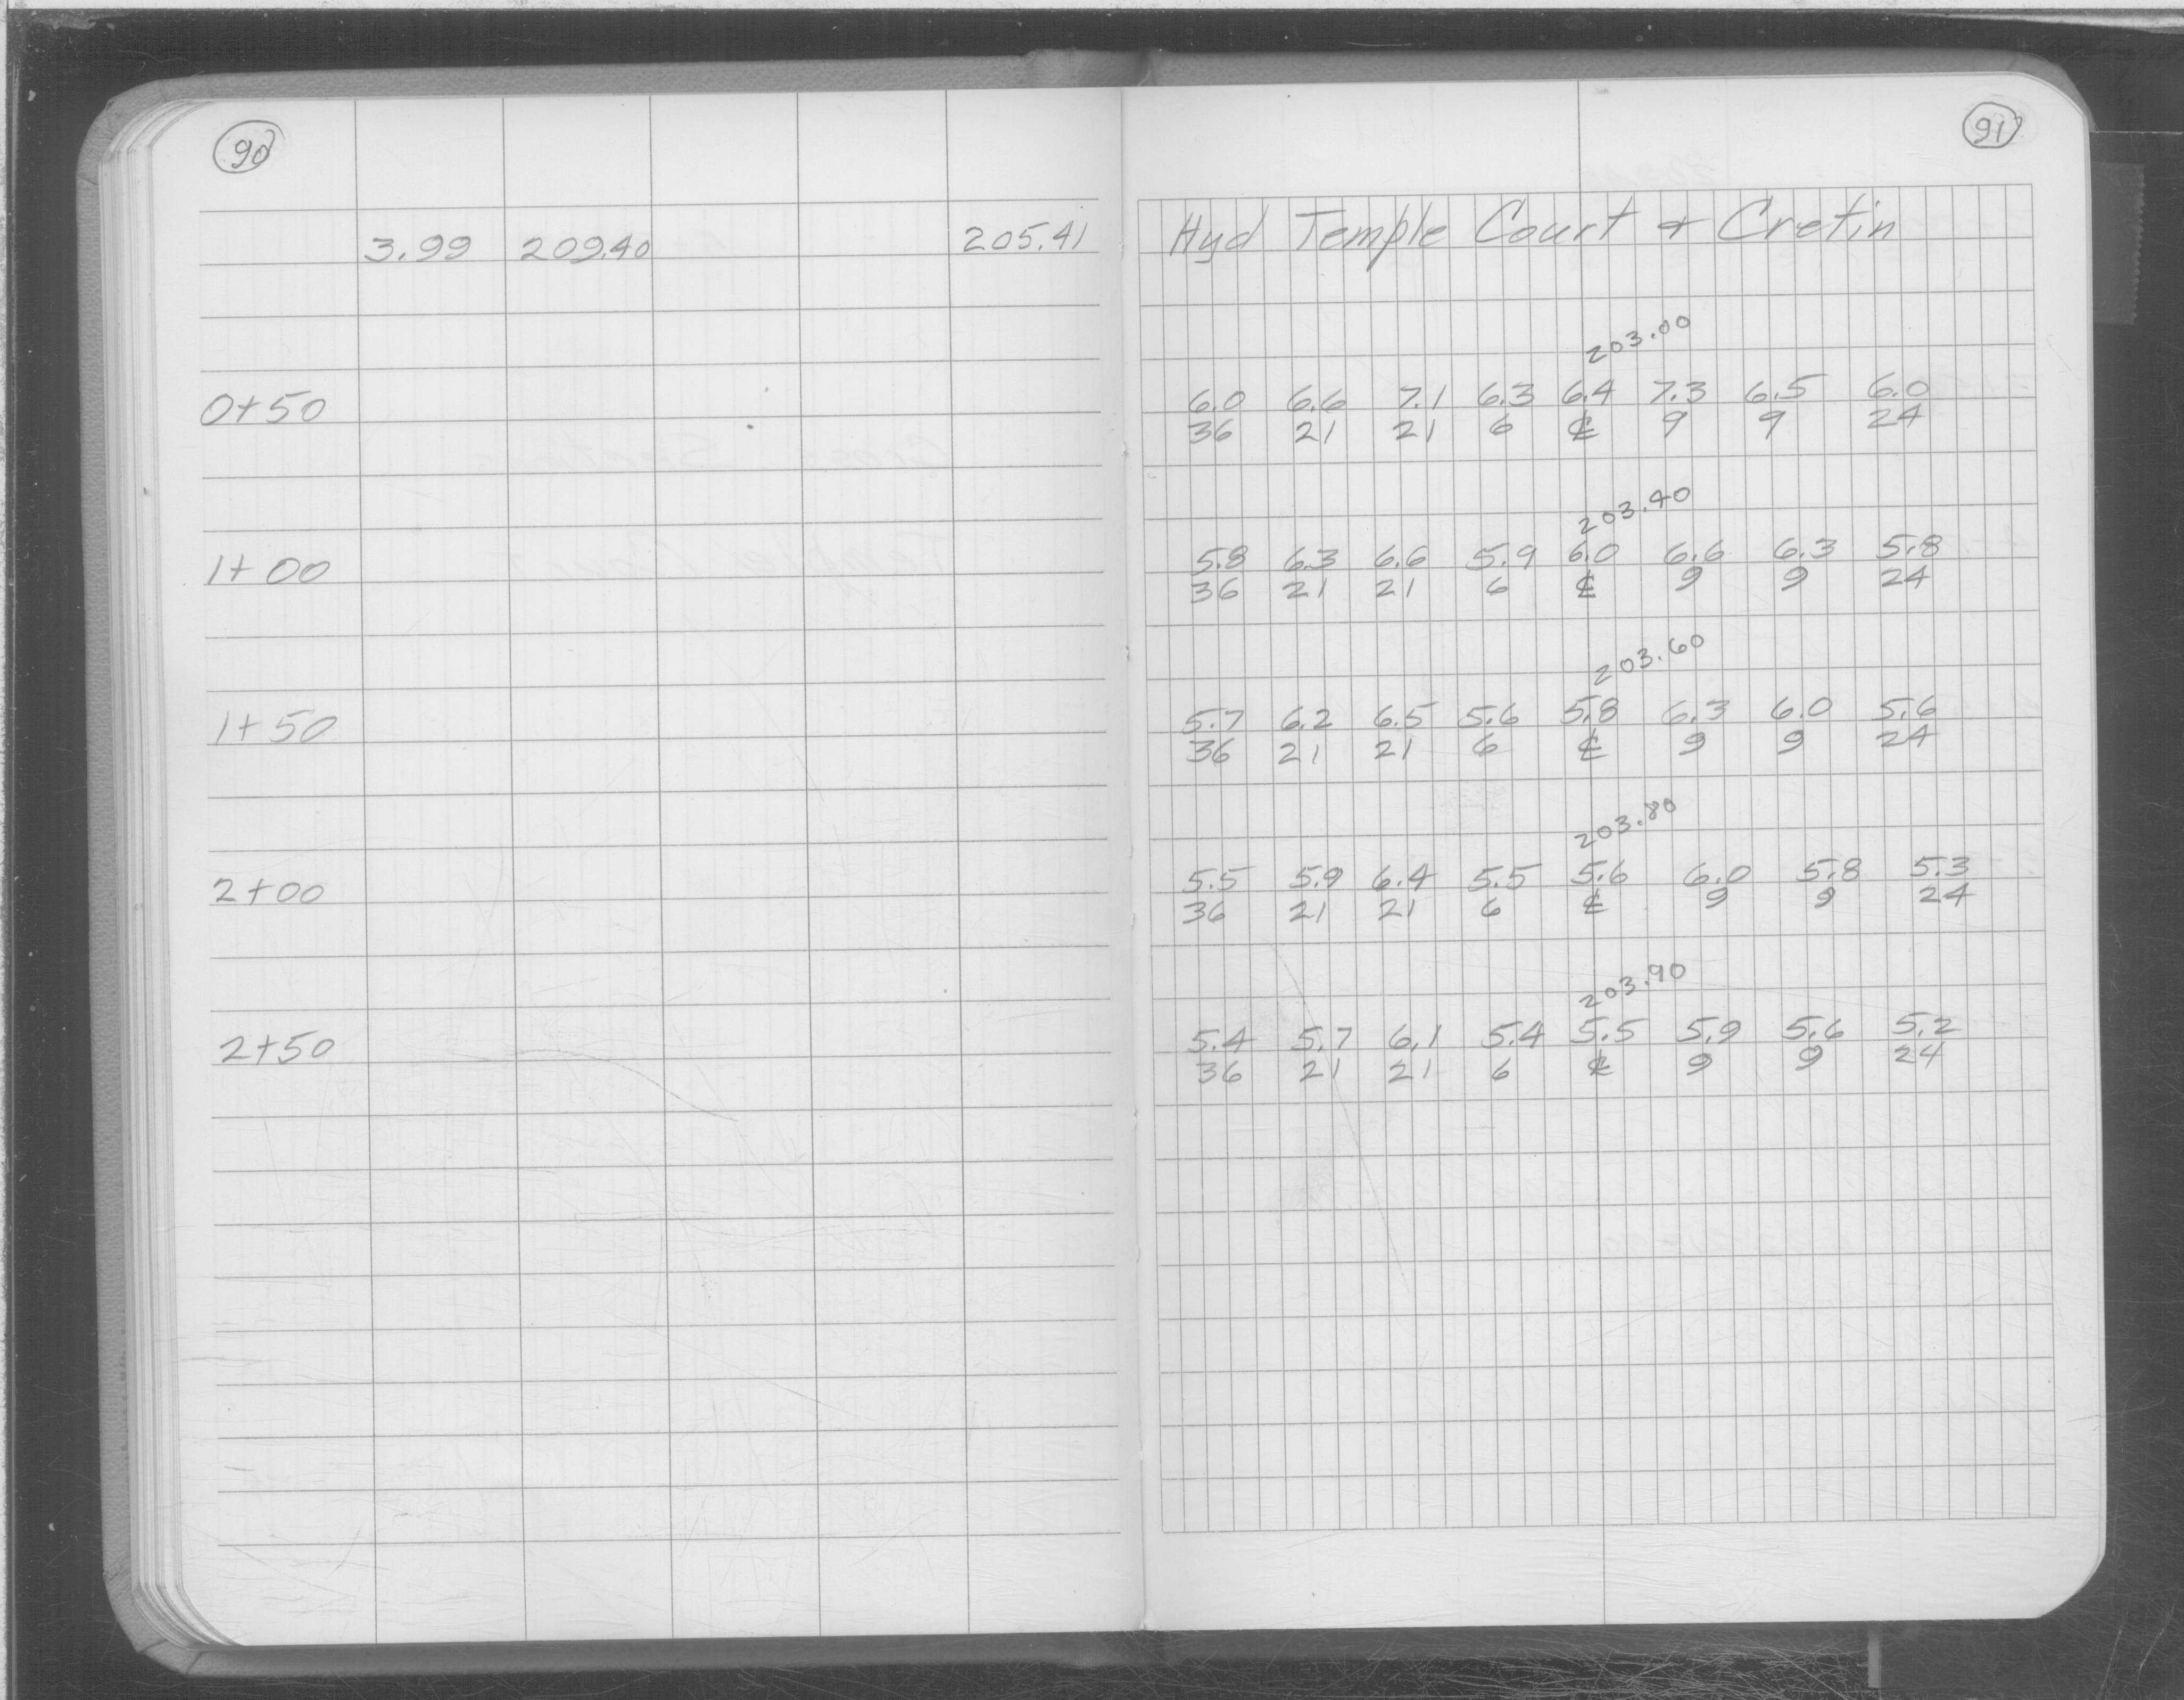 90
91
3.99 209.40 205.41 Hyd Temple Court & Cretin
203.00
0+50 6.0 6.6 7.1 6.3 6.4 7.3 6.5 6.0
36 21 21 6 ℄ 9 9 24
203.40
1+00 5.8 6.3 6.6 5.9 6.0 6.6 6.3 5.8
36 21 21 6 ℄ 9 9 24
203.60
1+50 5.7 6.2 6.5 5.6 5.8 6.3 6.0 5.6
36 21 21 6 ℄ 9 9 24
203.80
2+00 5.5 5.9 6.4 5.5 5.6 6.0 5.8 5.3
36 21 21 6 ℄ 9 9 24
203.90
2+50 5.4 5.7 6.1 5.4 5.5 5.9 5.6 5.2
36 21 21 6 ℄ 9 9 24